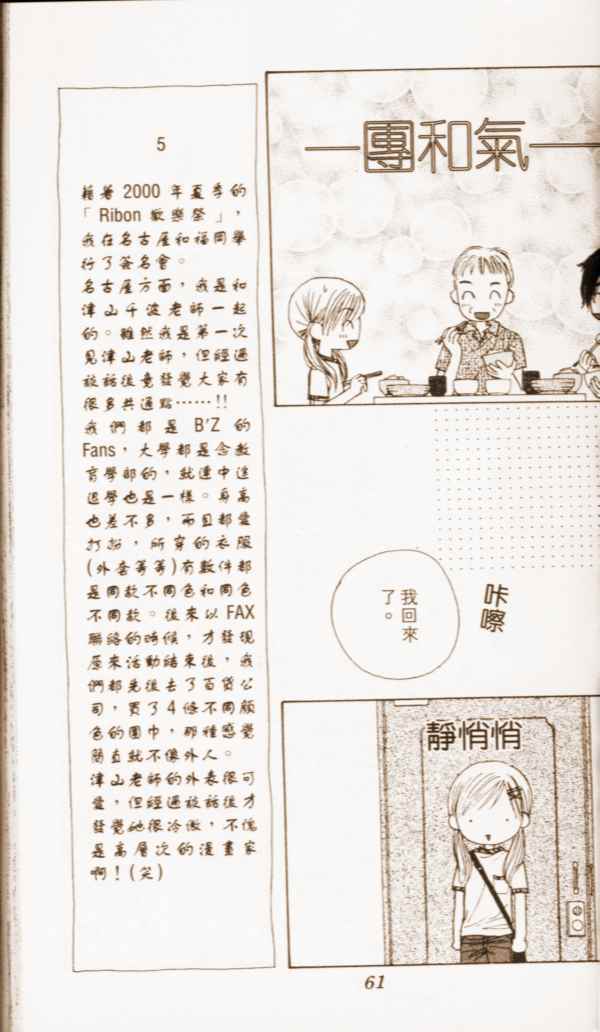 一團和氣一
咔嚓
我回來
了。
靜悄悄
5
藉著2000年夏季的
「Ribon歡樂祭」，
我在名古屋和福岡舉
行了簽名會。
名古屋方面，我是和
津山千波老師一起
的。雖然我是第一次
見津山老師，但經過
談話後竟發覺大家有
很多共通點……!!
我們都是B'Z的
Fans，大學都是念教
育學部的，就連中途
退學也是一樣。身高
也差不多，而且都愛
打扮，所穿的衣服
(外套等等)有數件都
是同款不同色和同色
不同款。後來以FAX
聯絡的時候，才發現
原來活動結束後，我
們都先後去了百貨公
司，買了4條不同顏
色的圍巾，那種感覺
簡直就不像外人。
津山老師的外表很可
愛，但經過談話後才
發覺她很冷傲，不愧
是高層次的漫畫家
啊！(笑)
61